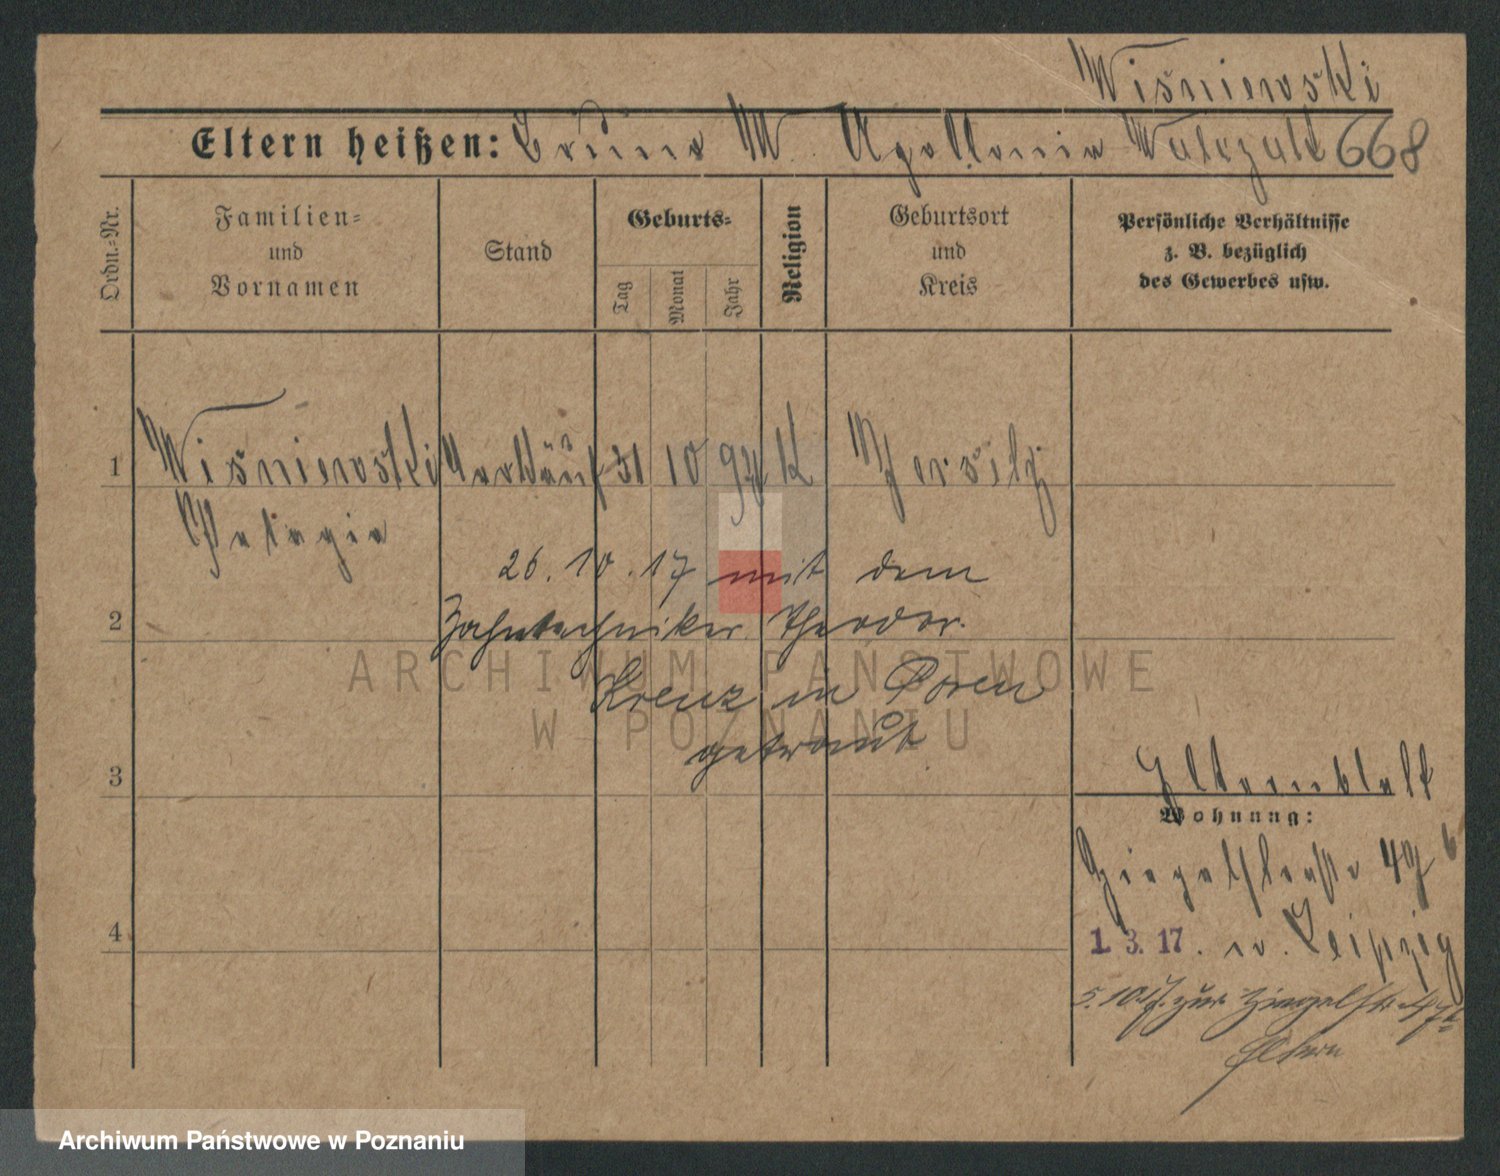 Wiśniewski
Eltern heißen: Bruno W. Apollonia Walczak 668
Ordn.=Nr.
Familien=
und
Vornamen
Stand
Geburts=
Tag
Monat
Jahr
Religion
Geburtsort
und
Kreis
Persönliche Verhältnisse
z. B. bezüglich
des Gewerbes usw.
1 Wiśniewski Verkäuf 31 10 97 K Jersitz
Pelagia
26. 10. 17 mit dem
2 Zahntechniker Theodor
Krenz in Posen
getraut
3
Elternblatt
Wohnung:
Ziegelstraße 49
4
1. 3. 17. n. Leipzig
5.10.17. zur Ziegelstr.
Eltern
ARCHIWUM PAŃSTWOWE
W POZNANIU
Archiwum Państwowe w Poznaniu